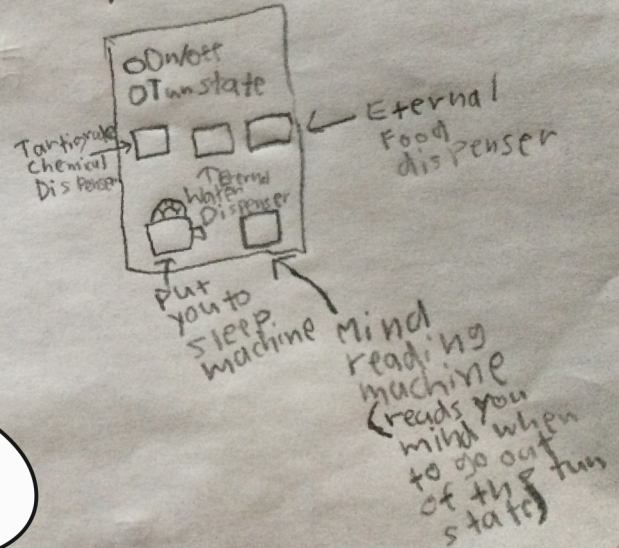 On/off
Tun state
Tardigrade
Chemical
Dispenser
Eternal
Food
dispenser
Eternal
Water
Dispenser
Put
you to
sleep
machine
Mind
reading
machine
(reads you
mind when
to go out
of the tun
state)